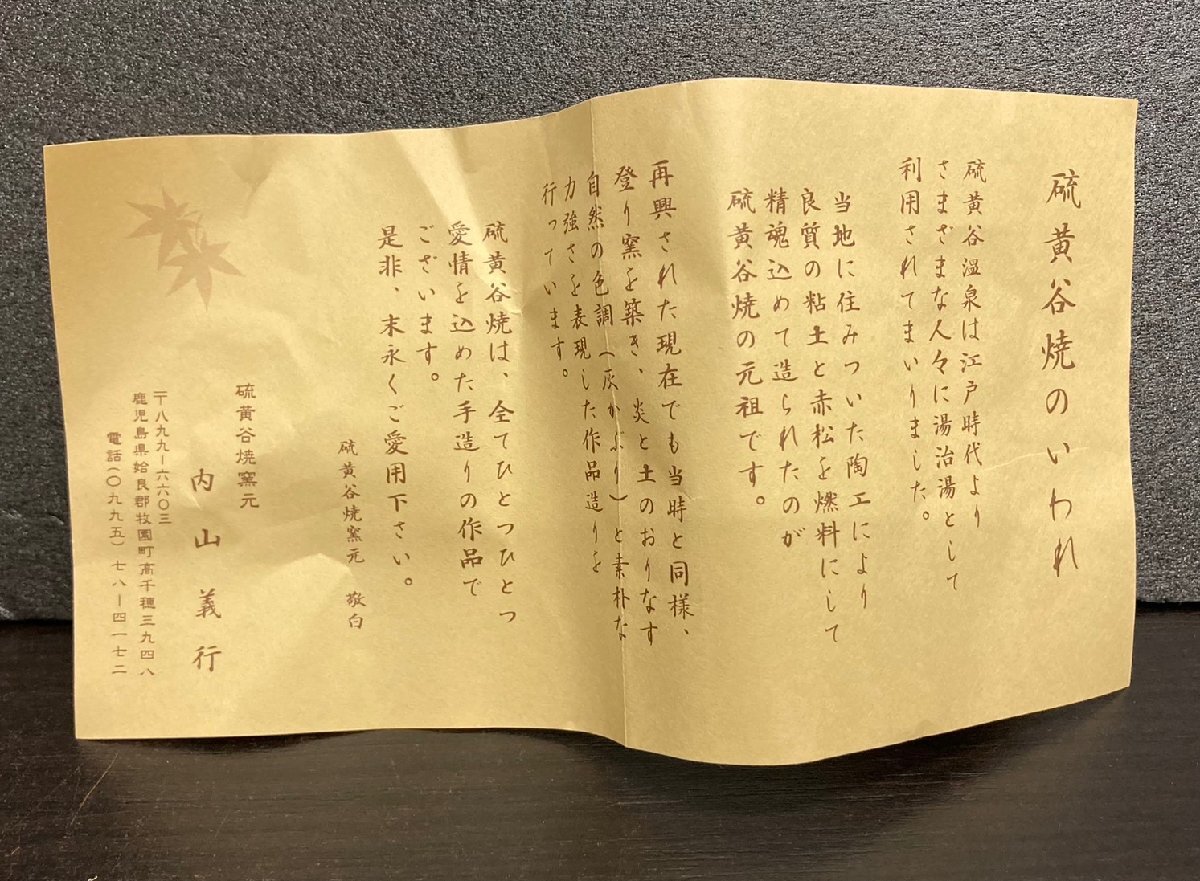 硫黄谷焼のいわれ
硫黄谷温泉は江戸時代より
さまざまな人々に湯治湯として
利用されてまいりました。
当地に住みついた陶工により
良質の粘土と赤松を燃料にして
精魂込めて造られたのが
硫黄谷焼の元祖です。
再興された現在でも当時と同様、
登り窯を築き、炎と土のおりなす
自然の色調(灰かぶり)と素朴な
力強さを表現した作品造りを
行っています。
硫黄谷焼は、全てひとつひとつ
愛情を込めた手造りの作品で
ございます。
是非、末永くご愛用下さい。
硫黄谷焼窯元 敬白
硫黄谷焼窯元
内山義行
〒八九九ー六六〇三
鹿児島県姶良郡牧園町高千穂三九四八
電話(〇九九五)七八ー四一七二